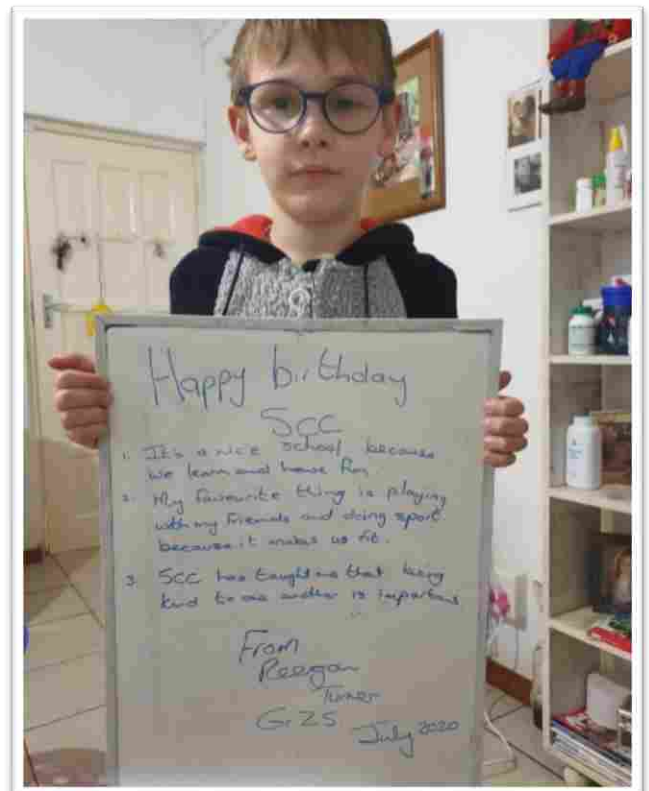 Happy birthday
SCC
1. It's a nice school, because
we learn and have fun
2. My favourite thing is playing
with my friends and doing sport
because it makes us fit.
3. SCC has taught me that being
kind to one another is important
From
Reegan
Turner
Gr 2S
July 2020